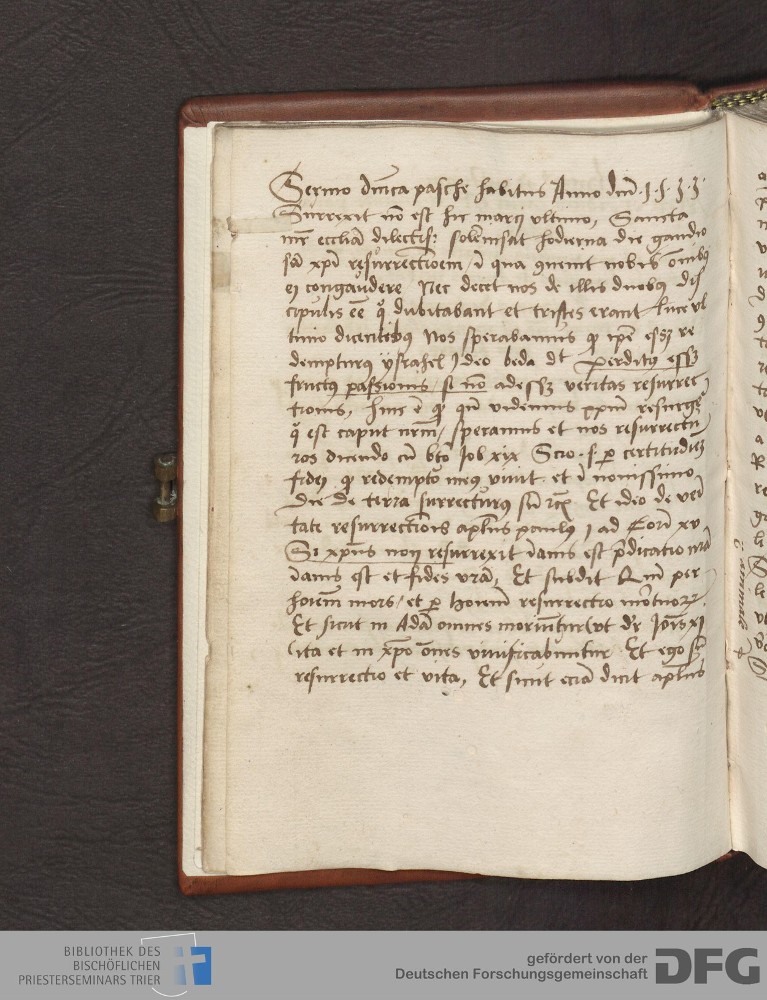 Sermo dn̄ica pasche habitus Anno dn̄i 1533
Surrexit nō est hic marci vltimo, Sancta
mr̄ ecclīa dilectiss: solemisat hodierna die gaudiō
xpī resurrectionem ī qua 9uenit nobis om̄ibꝯ
ei congaudere Nec decet nos de illis duobꝯ dis
cipulis ēē q̊ dubitabant et tristes erant luce vl
timo dicentibꝯ Nos sperabamus qꝫ ip̄e essꝫ re
dempturꝯ ysrahel Ideo beda dt perditꝯ essꝫ
fructꝯ passionis, si nō adessꝫ veritas resurrec
tionis, hinc ē qꝫ qn̄ videmus xpm̄ resurgē
q̊ est caput nrm̄, speramus et nos resurrectu
ros dicendo cū bt̄o Job xix Scio .s. ꝑ certitudīeꝫ
fidei qꝫ redemptor meꝯ viuit et ī nouissimo
die de terra surrecturꝯ sū rc̄ Et ideo de veri
tate resurrectiōis aplūs paulꝯ 1 ad Corī xv
Si xpūs non resurrexit īanis est p̄dicatio nrā
īanis est et fides vrā, Et subdit Qm̄ per
hoīem mors, et ꝑ hoīem resurrectio mortuoꝝ.
Et sicut in Adā omnes moriūtur (vt dr̄ Joīs xi
(ita et in xp̄o ōnes viuificabuntur Et ego sū
resurrectio et vita, Et sicut eciā dicit aplūs
BIBLIOTHEK DES
BISCHÖFLICHEN
PRIESTERSEMINARS TRIER
gefördert von der
Deutschen Forschungsgemeinschaft
DFG